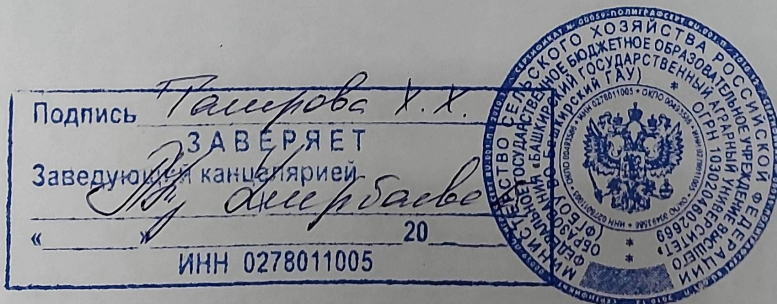 Подпись Тагирова Х. Х.
ЗАВЕРЯЕТ
Заведующей канцелярией
« » 20
ИНН 0278011005
МИНИСТЕРСТВО СЕЛЬСКОГО ХОЗЯЙСТВА РОССИЙСКОЙ ФЕДЕРАЦИИ
ФЕДЕРАЛЬНОЕ ГОСУДАРСТВЕННОЕ БЮДЖЕТНОЕ ОБРАЗОВАТЕЛЬНОЕ УЧРЕЖДЕНИЕ ВЫСШЕГО
ОБРАЗОВАНИЯ «БАШКИРСКИЙ ГОСУДАРСТВЕННЫЙ АГРАРНЫЙ УНИВЕРСИТЕТ»
(ФГБОУ ВО Башкирский ГАУ) * ОГРН 1030204602669 *
* ИНН 0278011005 * ОКПО 00493586